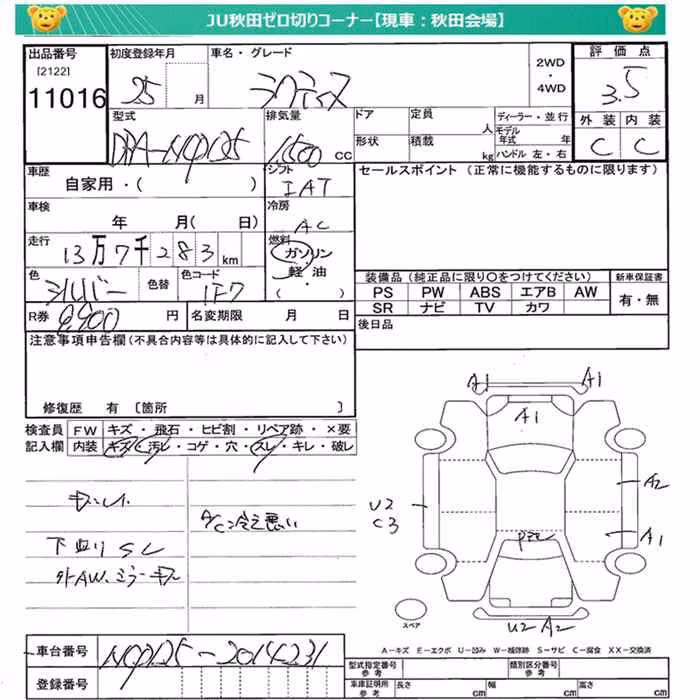 JU秋田ゼロ切りコーナー【現車：秋田会場】
出品番号
[2122]
11016
初度登録年月
25 月
車名・グレード
ラクティス
2WD
・
4WD
評価点
3.5
外装 内装
C C
型式
DBA-NCP125
排気量
1,500 cc
ドア
定員 人
ディーラー・並行
モデル年式 年
形状
積載 kg
ハンドル 左・右
車歴
自家用・( )
シフト
IAT
セールスポイント（正常に機能するものに限ります）
車検
年 月( 日)
冷房
AC
走行
13万7千283km
燃料
ガソリン
・
軽・油
( )
色
シルバー
色替
色コード
1F7
装備品（純正品に限り○をつけてください）
新車保証書
PS PW ABS エアB AW
有・無
SR ナビ TV カワ
R券 9,900 円
名変期限 月 日
後日品
注意事項申告欄(不具合内容等は具体的に記入して下さい)
修復歴 有 〔箇所 〕
検査員 FW キズ・飛石・ヒビ割・リペア跡・×要
記入欄 内装 キズ・汚レ・コゲ・穴・スレ・キレ・破レ
キズ
下廻りSC
外AW、ミラーキズ
A/C冷え悪い
A1 A1
A1
A2
A1
U2
C3
U2 A2
スペア
A-キズ E-エクボ U-凹み W-補修跡 S-サビ C-腐食 XX-交換済
車台番号 NCP125-2014231
登録番号
型式指定番号 参考
類別区分番号 参考
車庫証明用 参考
長さ cm 幅 cm 高さ cm